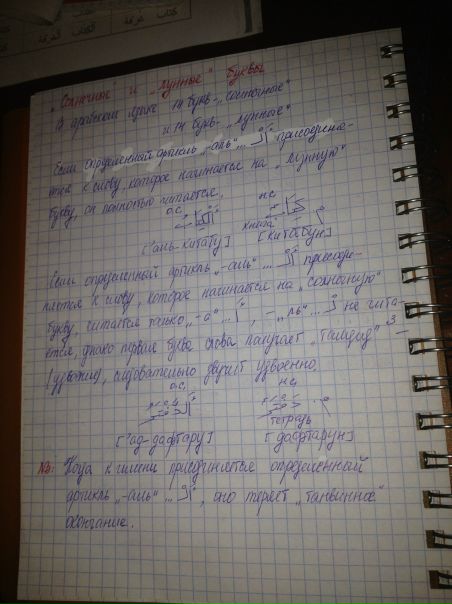 "Солнечные" и "лунные" буквы
В арабском языке 14 букв - "солнечные"
и 14 букв - "лунные"
Если определенный артикль "-аль"... اَلْ присоединя-
ется к слову, которое начинается на "лунную"
букву, он полностью читается.
о.с. н.с.
اَلْكِتَابُ كِتَابٌ
книга
['аль-китабу] [китабун]
Если определенный артикль "-аль"... اَلْ присоеди-
няется к слову, которое начинается на "солнечную"
букву, читается только "-а"... اَ, - "ль"... لْ не чита-
ется, однако первая буква слова получает "ташдид"
(удвоение), следовательно звучит удвоенно.
о.с. н.с.
اَلدَّفْتَرُ دَفْتَرٌ
тетрадь
['ад-дафтару] [дафтарун]
NB: Когда к имени присоединяется определенный
артикль "-аль"... اَلْ, оно теряет "танвинное"
окончание.